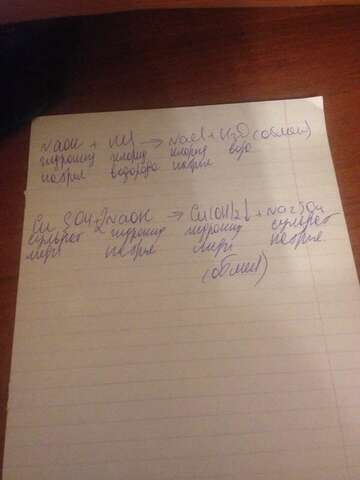 NaOH + HCl → NaCl + H2O (обмен)
гидроксид хлорид хлорид вода
натрия водорода натрия
CuSO4 + 2NaOH → Cu(OH)2↓ + Na2SO4
сульфат гидроксид гидроксид сульфат
меди натрия меди натрия
(обмен)